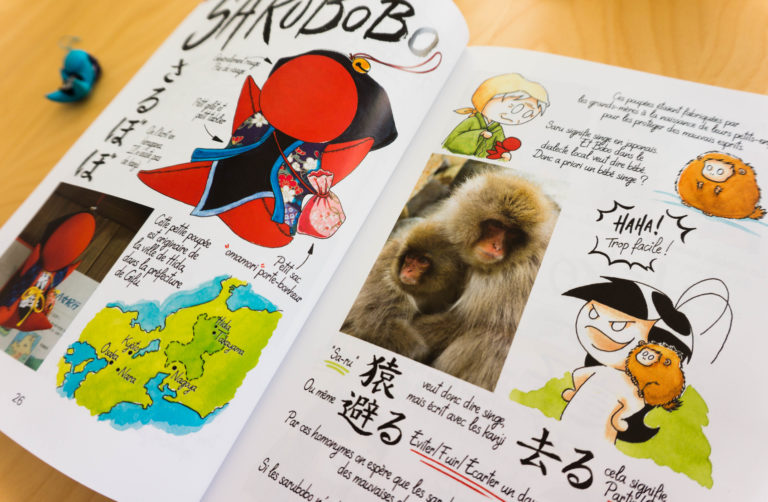 SARUBOBO
さるぼぼ
Petit gilet et
petit tablier
Cette petite poupée
est originaire de
la ville de Hida,
dans la préfecture
de Gifu.
Petit sac
"omamori" porte-bonheur
Hida
Takayama
Kyoto
Osaka
Nara
Nagoya
26
Ces poupées étaient fabriquées par
les grands-mères à la naissance de leurs petits-en
pour les protéger des mauvais esprits.
Saru signifie singe en japonais.
Et Bobo dans le
dialecte local veut dire bébé.
Donc a priori un bébé singe ?
HAHA!
Trop facile !
"Sa-ru"
猿
veut donc dire singe,
mais écrit avec les kanji
Ou même
避る
Éviter/Fuir/Écarter un dan
去る
cela signifie
Part
Par ces homonymes on espère que les sar
des mauvaises
Si les sarubobo